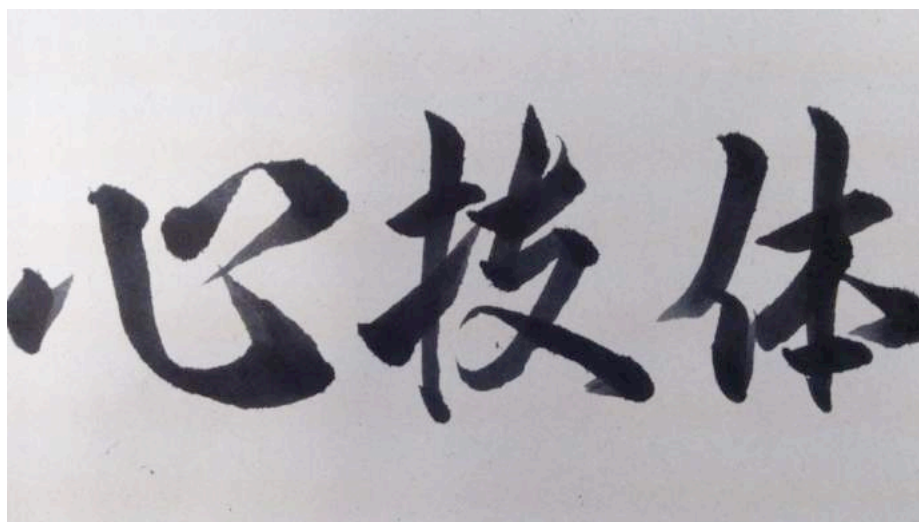 心技体